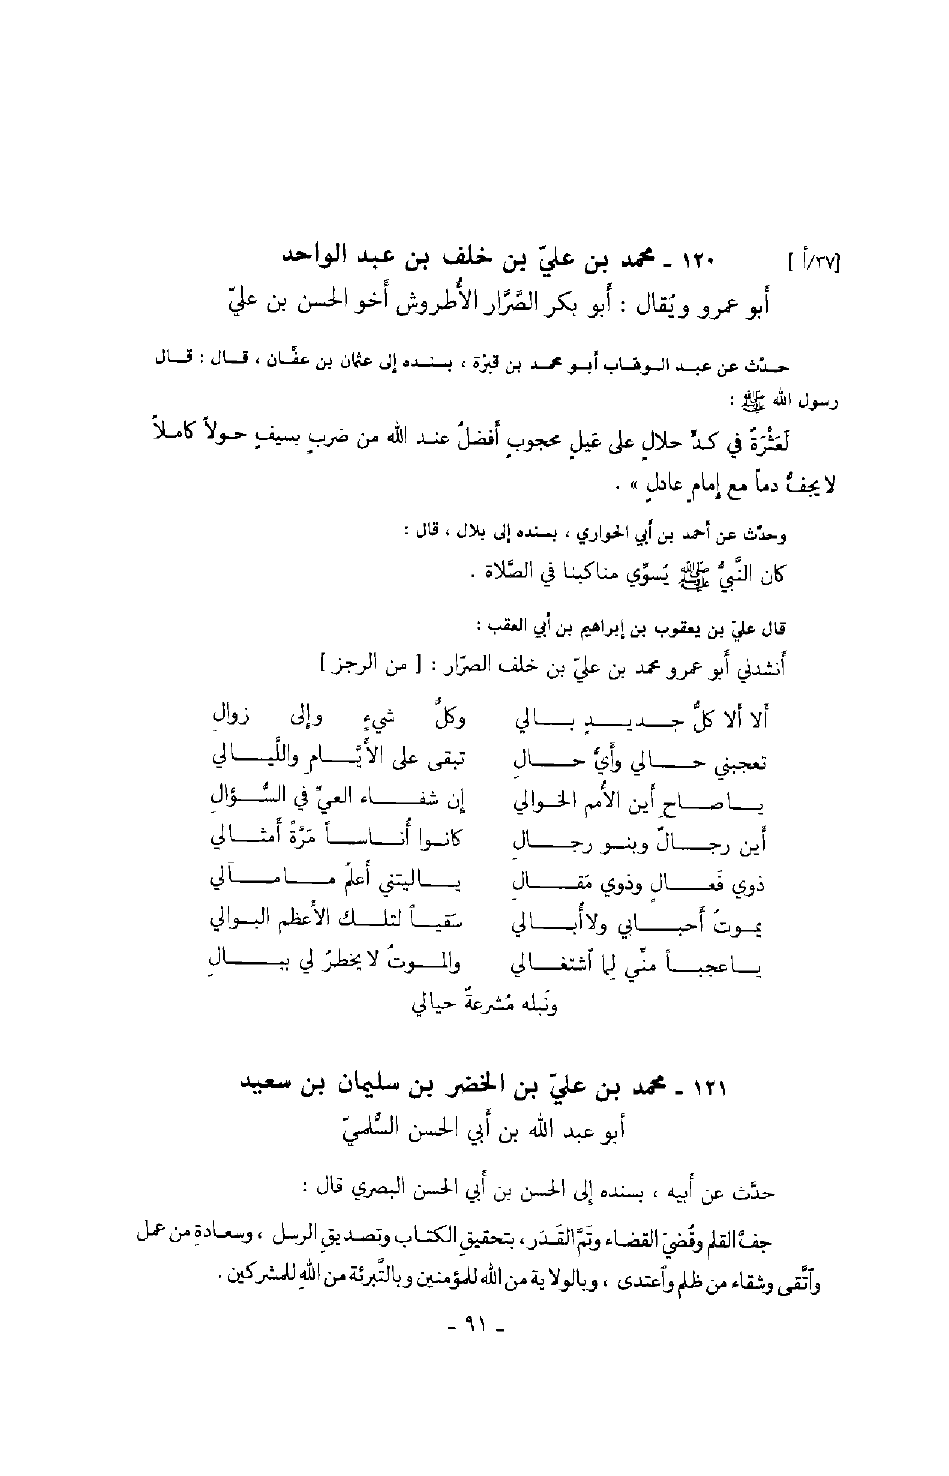 [٣٧/أ] ١٢٠ ـ محمد بن عليّ بن خلف بن عبد الواحد
أبو عمرو ويُقال : أبو بكر الصَّرَّار الأُطروش أخو الحسن بن عليّ
حدّث عن عبد الوهّاب أبو محمد بن قبرّة ، بسنده إلى عثمان بن عفّان ، قال : قال
رسول الله ﷺ :
لَعَثْرَةٌ في كدِّ حلالٍ على عَيلٍ محجوبٍ أفضلُ عند الله من ضربٍ بسيفٍ حولاً كاملاً
لا يجفُّ دماً مع إمامٍ عادلٍ » .
وحدّث عن أحمد بن أبي الحواري ، بسنده إلى بلال ، قال :
كان النَّبيُّ ﷺ يُسوِّي مناكبنا في الصَّلاة .
قال عليّ بن يعقوب بن إبراهيم بن أبي العقب :
أنشدني أبو عمرو محمد بن عليّ بن خلف الصرّار : [ من الرجز ]
ألا ألا كلُّ جديدٍ بالي وكلُّ شيءٍ وإلى زوالِ
تعجبني حالي وأيُّ حالِ تبقى على الأيَّامِ واللَّيالي
ياصاحِ أين الأمم الخوالي إن شفاء العيِّ في السُّؤالِ
أين رجالٌ وبنو رجالِ كانوا أُناساً مَرَّةً أمثالي
ذوي فَعالٍ وذوي مَقالِ ياليتني أعلمُ مامآلي
يموتُ أحبابي ولاأُبالي سَقياً لتلك الأعظُم البوالي
ياعجباً منّي لِما اَشتغالي والموتُ لا يخطرُ لي ببالِ
ونَبله مُشرعةٌ حيالي
١٢١ ـ محمد بن عليّ بن الخضر بن سليمان بن سعيد
أبو عبد الله بن أبي الحسن السُّلميّ
حدَّث عن أبيه ، بسنده إلى الحسن بن أبي الحسن البصري قال :
جفَّ القلم وقُضيَ القضاء وتَمَّ القَدَر ، بتحقيقِ الكتاب وتصديقِ الرسل ، وسعادةِ من عمل
وآتَّقى وشقاء من ظلم وآعتدى ، وبالولاية من الله للمؤمنين وبالتَّبرئة من الله للمشركين .
ـ ٩١ ـ